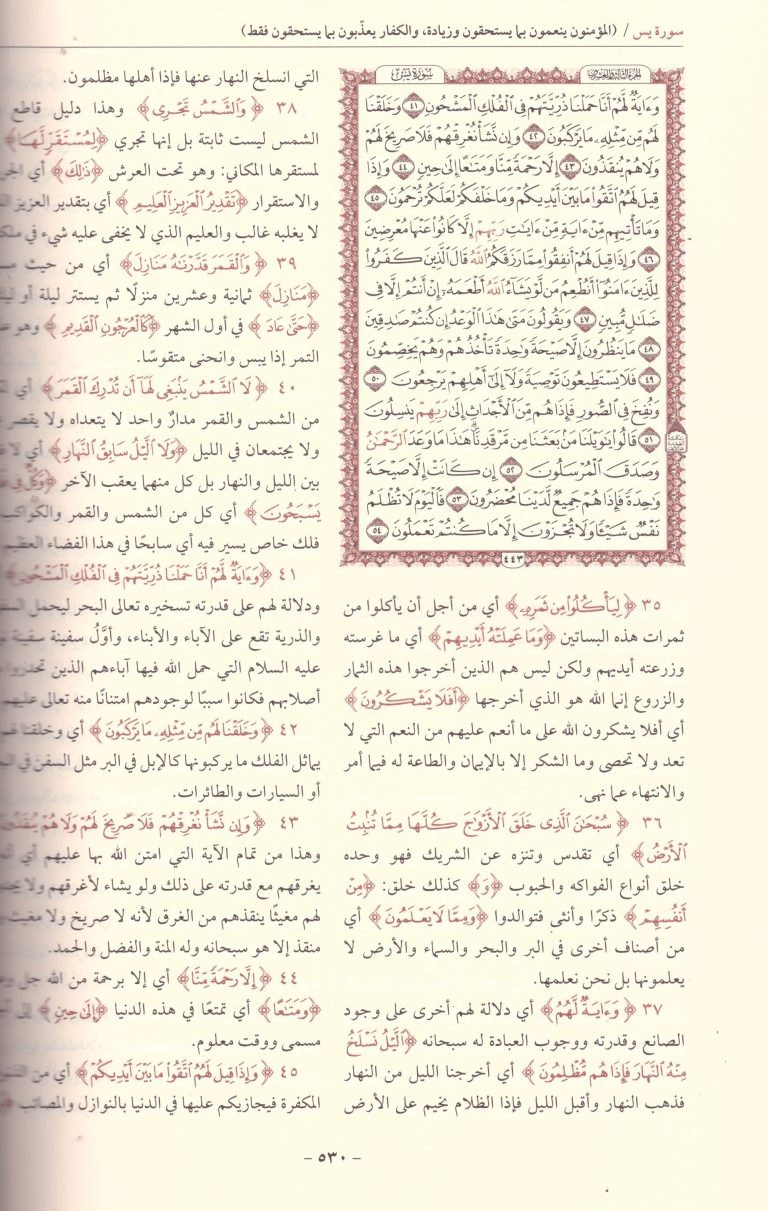 سورة يس / (المؤمنون ينعمون بما يستحقون وزيادة، والكفار يعذّبون بما يستحقون فقط)
سورة يس
الجزء الثالث والعشرون
وَءَايَةٌ لَّهُمْ أَنَّا حَمَلْنَا ذُرِّيَّتَهُمْ فِى الْفُلْكِ الْمَشْحُونِ ٤١ وَخَلَقْنَا
لَهُم مِّن مِّثْلِهِۦ مَا يَرْكَبُونَ ٤٢ وَإِن نَّشَأْ نُغْرِقْهُمْ فَلَا صَرِيخَ لَهُمْ
وَلَا هُمْ يُنقَذُونَ ٤٣ إِلَّا رَحْمَةً مِّنَّا وَمَتَاعًا إِلَىٰ حِينٍ ٤٤ وَإِذَا
قِيلَ لَهُمُ اتَّقُوا مَا بَيْنَ أَيْدِيكُمْ وَمَا خَلْفَكُمْ لَعَلَّكُمْ تُرْحَمُونَ ٤٥
وَمَا تَأْتِيهِم مِّنْ ءَايَةٍ مِّنْ ءَايَاتِ رَبِّهِمْ إِلَّا كَانُوا عَنْهَا مُعْرِضِينَ
٤٦ وَإِذَا قِيلَ لَهُمْ أَنفِقُوا مِمَّا رَزَقَكُمُ اللَّهُ قَالَ الَّذِينَ كَفَرُوا
لِلَّذِينَ ءَامَنُوا أَنُطْعِمُ مَن لَّوْ يَشَاءُ اللَّهُ أَطْعَمَهُ إِنْ أَنتُمْ إِلَّا فِى
ضَلَالٍ مُّبِينٍ ٤٧ وَيَقُولُونَ مَتَىٰ هَٰذَا الْوَعْدُ إِن كُنتُمْ صَادِقِينَ
٤٨ مَا يَنظُرُونَ إِلَّا صَيْحَةً وَاحِدَةً تَأْخُذُهُمْ وَهُمْ يَخِصِّمُونَ
٤٩ فَلَا يَسْتَطِيعُونَ تَوْصِيَةً وَلَا إِلَىٰ أَهْلِهِمْ يَرْجِعُونَ ٥٠
وَنُفِخَ فِى الصُّورِ فَإِذَا هُم مِّنَ الْأَجْدَاثِ إِلَىٰ رَبِّهِمْ يَنسِلُونَ
٥١ قَالُوا يَٰوَيْلَنَا مَن بَعَثَنَا مِن مَّرْقَدِنَا هَٰذَا مَا وَعَدَ الرَّحْمَٰنُ
وَصَدَقَ الْمُرْسَلُونَ ٥٢ إِن كَانَتْ إِلَّا صَيْحَةً
وَاحِدَةً فَإِذَا هُمْ جَمِيعٌ لَّدَيْنَا مُحْضَرُونَ ٥٣ فَالْيَوْمَ لَا تُظْلَمُ
نَفْسٌ شَيْئًا وَلَا تُجْزَوْنَ إِلَّا مَا كُنتُمْ تَعْمَلُونَ ٥٤
٤٤٣
٣٥ ﴿لِيَأْكُلُوا مِن ثَمَرِهِۦ﴾ أي من أجل أن يأكلوا من
ثمرات هذه البساتين ﴿وَمَا عَمِلَتْهُ أَيْدِيهِمْ﴾ أي ما غرسته
وزرعته أيديهم ولكن ليس هم الذين أخرجوا هذه الثمار
والزروع إنما الله هو الذي أخرجها ﴿أَفَلَا يَشْكُرُونَ﴾
أي أفلا يشكرون الله على ما أنعم عليهم من النعم التي لا
تعد ولا تحصى وما الشكر إلا بالإيمان والطاعة له فيما أمر
والانتهاء عما نهى.
٣٦ ﴿سُبْحَانَ الَّذِى خَلَقَ الْأَزْوَاجَ كُلَّهَا مِمَّا تُنۢبِتُ
الْأَرْضُ﴾ أي تقدس وتنزه عن الشريك فهو وحده
خلق أنواع الفواكه والحبوب ﴿وَ﴾ كذلك خلق: ﴿مِنْ
أَنفُسِهِمْ﴾ ذكرًا وأنثى فتوالدوا ﴿وَمِمَّا لَا يَعْلَمُونَ﴾ أي
من أصناف أخرى في البر والبحر والسماء والأرض لا
يعلمونها بل نحن نعلمها.
٣٧ ﴿وَءَايَةٌ لَّهُمُ﴾ أي دلالة لهم أخرى على وجود
الصانع وقدرته ووجوب العبادة له سبحانه ﴿الَّيْلُ نَسْلَخُ
مِنْهُ النَّهَارَ فَإِذَا هُم مُّظْلِمُونَ﴾ أي أخرجنا الليل من النهار
فذهب النهار وأقبل الليل فإذا الظلام يخيم على الأرض
التي انسلخ النهار عنها فإذا أهلها مظلمون.
٣٨ ﴿وَالشَّمْسُ تَجْرِى﴾ وهذا دليل قاطع
الشمس ليست ثابتة بل إنها تجري ﴿لِمُسْتَقَرٍّ لَّهَا﴾
لمستقرها المكاني: وهو تحت العرش ﴿ذَٰلِكَ﴾ أي
والاستقرار ﴿تَقْدِيرُ الْعَزِيزِ الْعَلِيمِ﴾ أي بتقدير العزيز
لا يغلبه غالب والعليم الذي لا يخفى عليه شيء في
٣٩ ﴿وَالْقَمَرَ قَدَّرْنَاهُ مَنَازِلَ﴾ أي من حيث
﴿مَنَازِلَ﴾ ثمانية وعشرين منزلًا ثم يستتر ليلة أو
﴿حَتَّىٰ عَادَ﴾ في أول الشهر ﴿كَالْعُرْجُونِ الْقَدِيمِ﴾ وهو
التمر إذا يبس وانحنى متقوسًا.
٤٠ ﴿لَا الشَّمْسُ يَنۢبَغِى لَهَا أَن تُدْرِكَ الْقَمَرَ﴾ أي
من الشمس والقمر مدارٌ واحد لا يتعداه ولا يقصر
ولا يجتمعان في الليل ﴿وَلَا الَّيْلُ سَابِقُ النَّهَارِ﴾ أي
بين الليل والنهار بل كل منهما يعقب الآخر ﴿وَكُلٌّ فِى
يَسْبَحُونَ﴾ أي كل من الشمس والقمر والكواكب
فلك خاص يسير فيه أي سابحًا في هذا الفضاء العظيم
٤١ ﴿وَءَايَةٌ لَّهُمْ أَنَّا حَمَلْنَا ذُرِّيَّتَهُمْ فِى الْفُلْكِ الْمَشْحُونِ﴾
ودلالة لهم على قدرته تسخيره تعالى البحر ليحمل
والذرية تقع على الآباء والأبناء، وأوَّلُ سفينة سفينة
عليه السلام التي حمل الله فيها آباءهم الذين تحدروا
أصلابهم فكانوا سببًا لوجودهم امتنانًا منه تعالى عليهم
٤٢ ﴿وَخَلَقْنَا لَهُم مِّن مِّثْلِهِۦ مَا يَرْكَبُونَ﴾ أي وخلقنا
يماثل الفلك ما يركبونها كالإبل في البر مثل السفن في
أو السيارات والطائرات.
٤٣ ﴿وَإِن نَّشَأْ نُغْرِقْهُمْ فَلَا صَرِيخَ لَهُمْ وَلَا هُمْ يُنقَذُونَ
وهذا من تمام الآية التي امتن الله بها عليهم أي
يغرقهم مع قدرته على ذلك ولو يشاء لأغرقهم ولا
لهم مغيثًا ينقذهم من الغرق لأنه لا صريخ ولا مغيث
منقذ إلا هو سبحانه وله المنة والفضل والحمد.
٤٤ ﴿إِلَّا رَحْمَةً مِّنَّا﴾ أي إلا برحمة من الله جل
﴿وَمَتَاعًا﴾ أي تمتعًا في هذه الدنيا ﴿إِلَىٰ حِينٍ﴾ إلى
مسمى ووقت معلوم.
٤٥ ﴿وَإِذَا قِيلَ لَهُمُ اتَّقُوا مَا بَيْنَ أَيْدِيكُمْ﴾ أي من
المكفرة فيجازيكم عليها في الدنيا بالنوازل والمصائب
- ٥٣٠ -